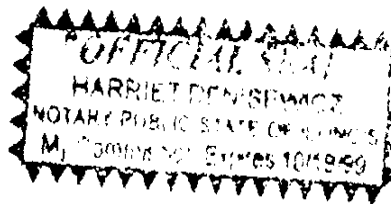 "OFFICIAL SEAL
HARRIET DENISEWICZ
NOTARY PUBLIC STATE OF ILLINOIS
My Commission Expires 10/19/99